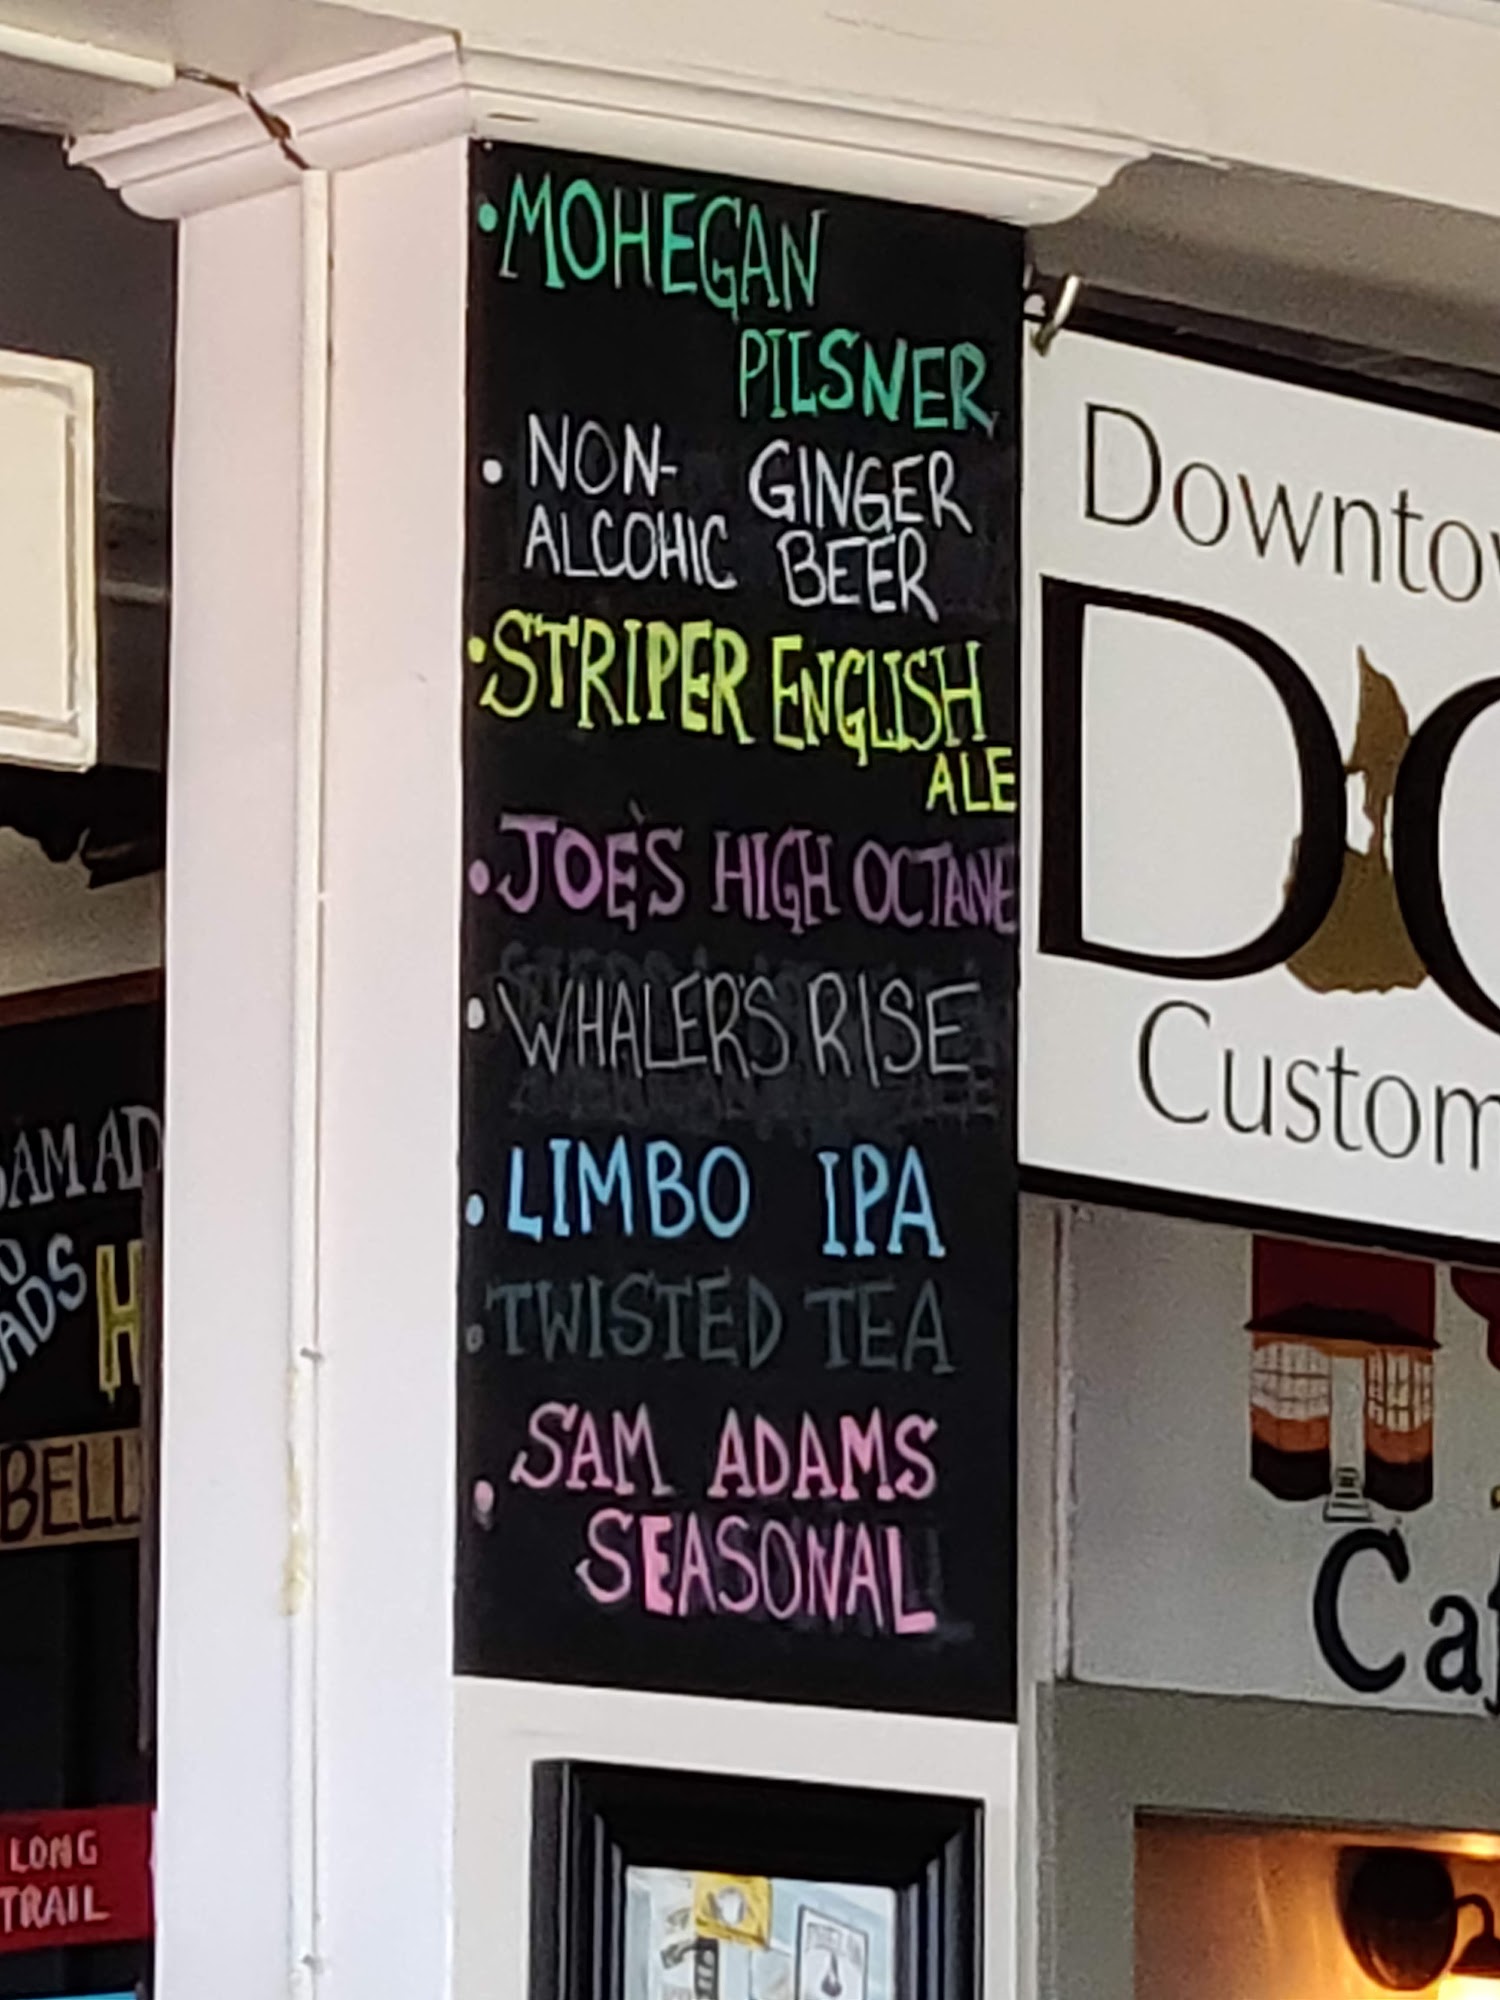 • MOHEGAN
PILSNER
• NON- GINGER
ALCOHIC BEER
• STRIPER ENGLISH
ALE
• JOE'S HIGH OCTANE
• WHALER'S RISE
• LIMBO IPA
• TWISTED TEA
• SAM ADAMS
SEASONAL
Downtow
D
Custom
Caf
SAM AD
ADS H
BELL
LONG
TRAIL